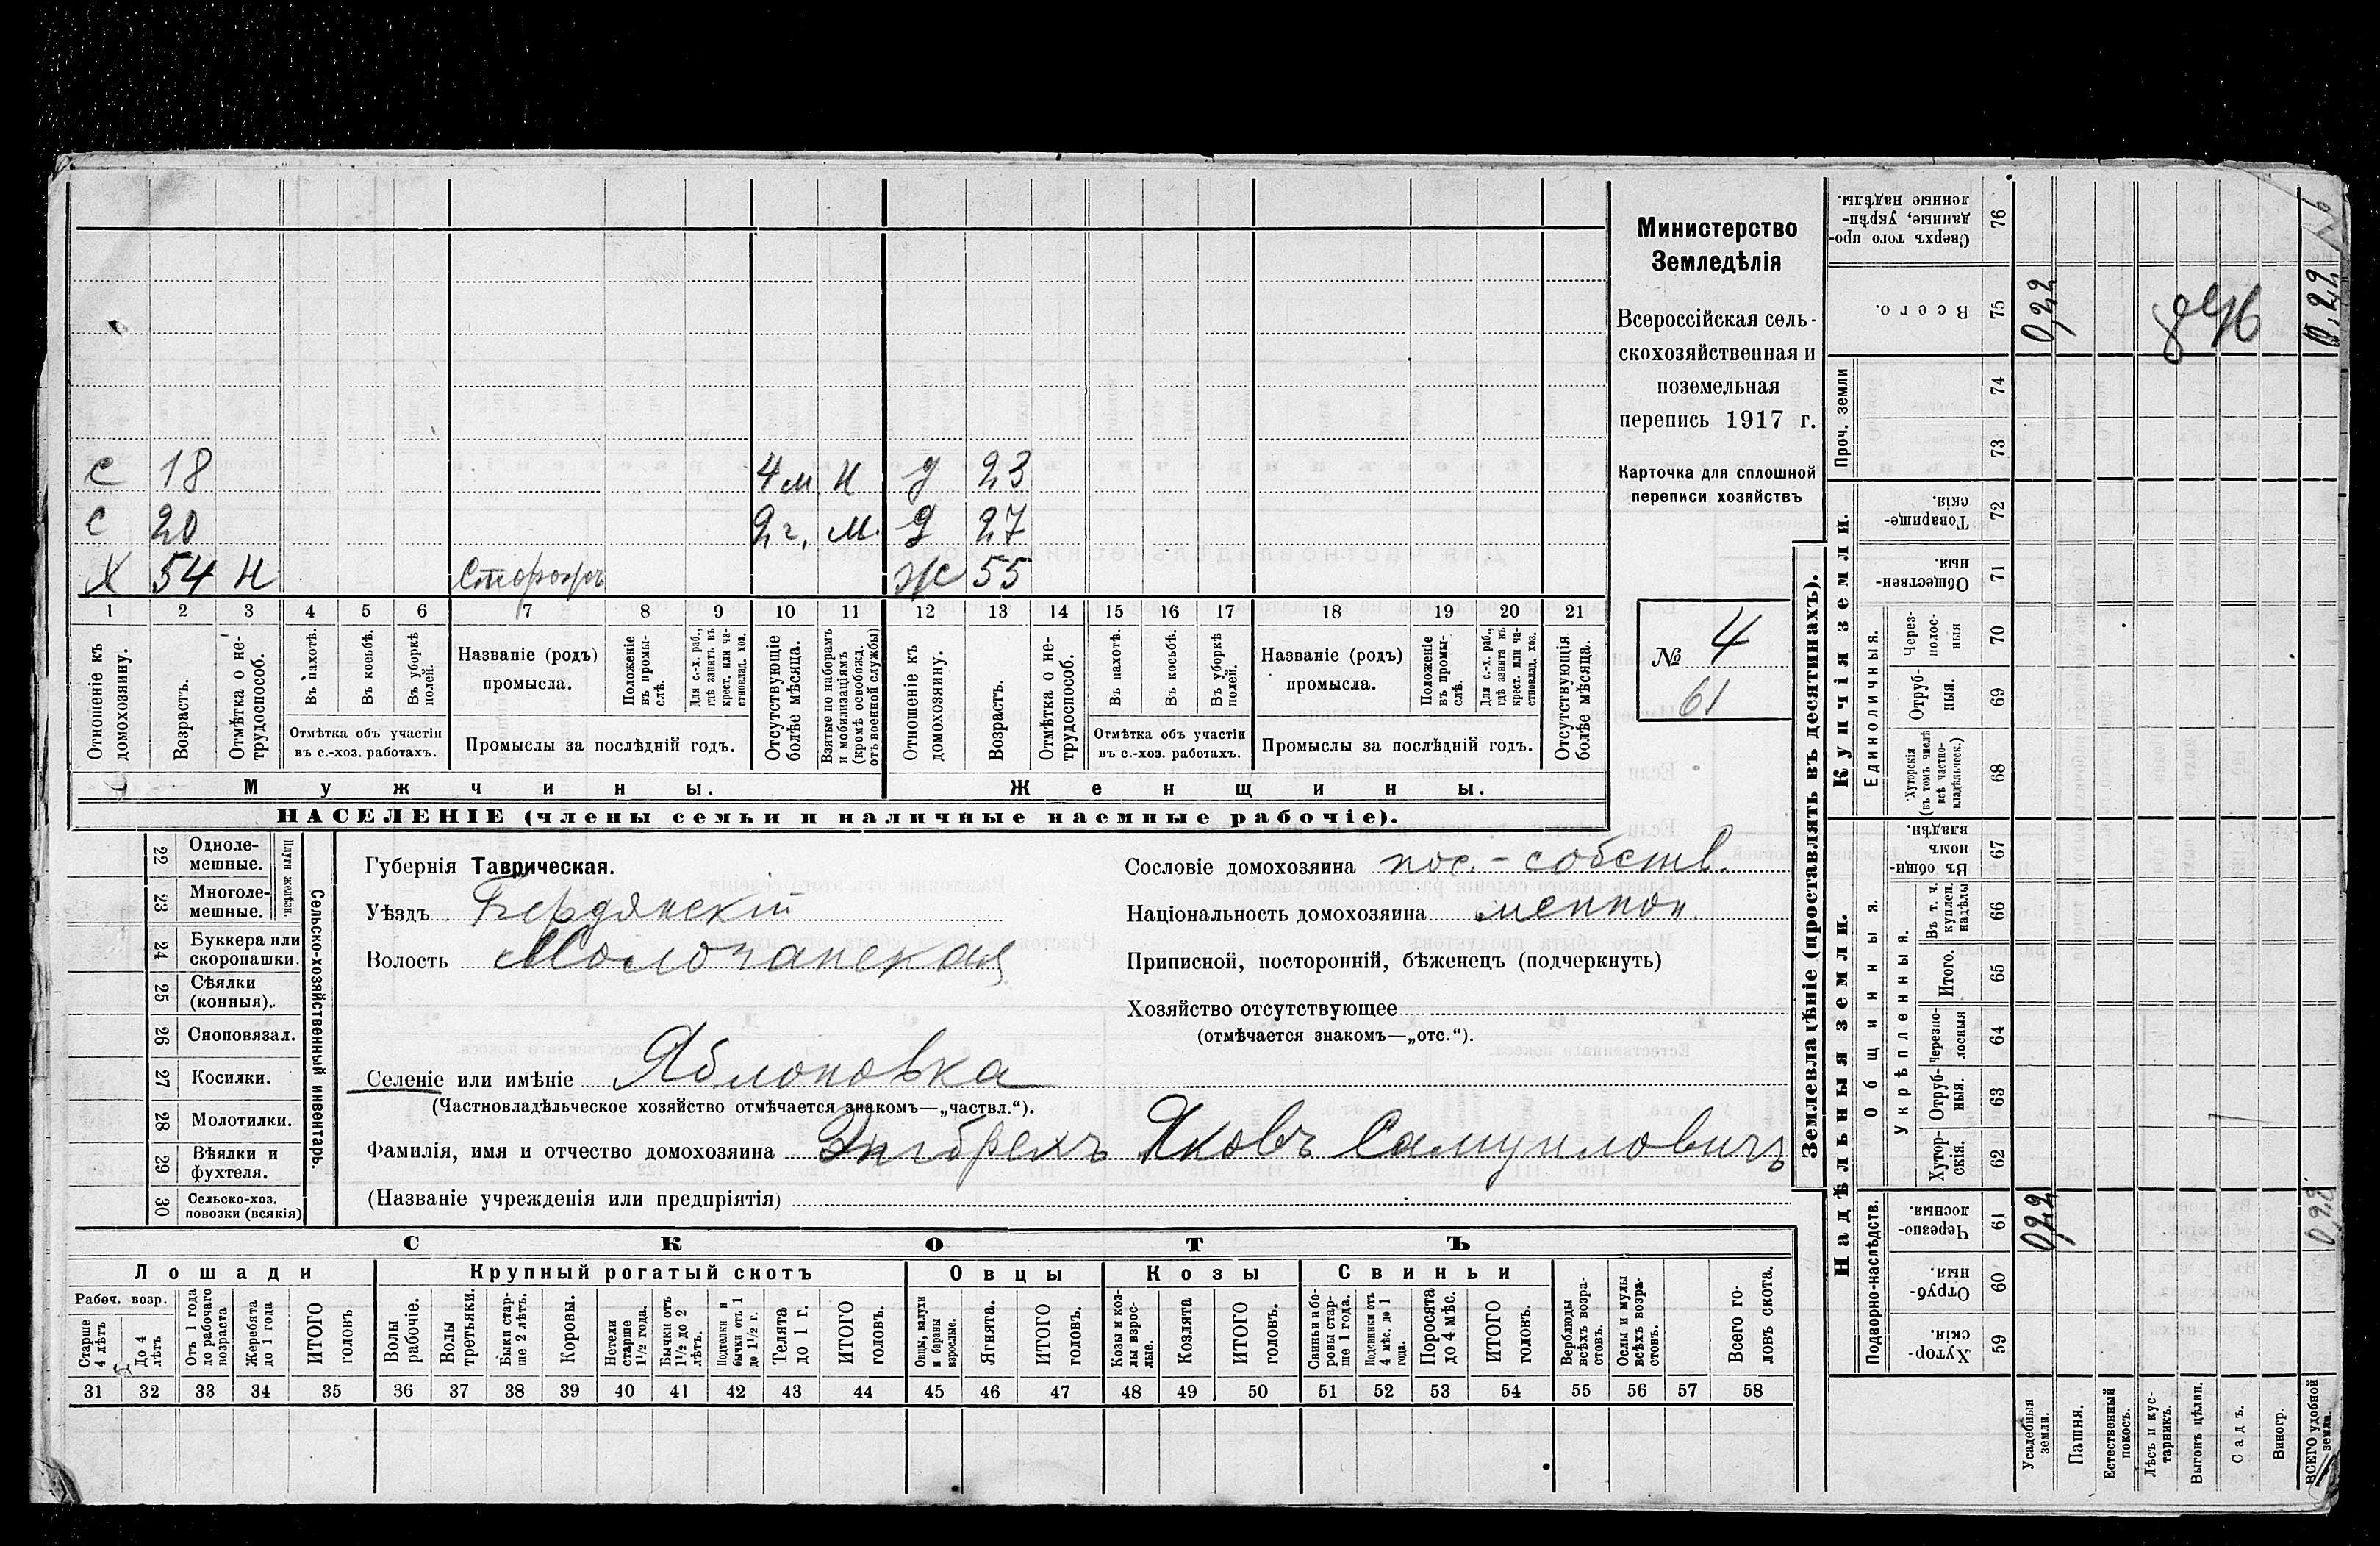 с 18 4 м. н д 23
с 20 2 г. м. д 27
х 54 н сторожъ ж 55
1 2 3 4 5 6 7 8 9 10 11 12 13 14 15 16 17 18 19 20 21
Отношеніе къ домохозяину.
Возрастъ.
Отмѣтка о не-
трудоспособ.
Въ пахотѣ.
Въ косьбѣ.
Въ уборкѣ
полей.
Отмѣтка объ участіи
въ с.-хоз. работахъ.
Названіе (родъ)
промысла.
Положеніе
въ промы-
слѣ.
Для с.-х. раб.,
гдѣ занятъ въ
крест. или ча-
стновлад. хоз.
Промыслы за послѣдній годъ.
Отсутствующіе
болѣе мѣсяца.
Взятые по наборамъ
и мобилизаціямъ
(кромѣ освобожд.
отъ военной службы)
Отношеніе къ
домохозяину.
Возрастъ.
Отмѣтка о не-
трудоспособ.
Въ пахотѣ.
Въ косьбѣ.
Въ уборкѣ
полей.
Отмѣтка объ участіи
въ с.-хоз. работахъ.
Названіе (родъ)
промысла.
Положеніе
въ промы-
слѣ.
Для с.-х. раб.,
гдѣ занята въ
крест. или ча-
стновлад. хоз.
Промыслы за послѣдній годъ.
Отсутствующія
болѣе мѣсяца.
Мужчины.
Женщины.
НАСЕЛЕНІЕ (члены семьи и наличные наемные рабочіе).
Министерство
Земледѣлія
Всероссійская сель-
скохозяйственная и
поземельная
перепись 1917 г.
Карточка для сплошной
переписи хозяйствъ
№ 4
61
22 Одноле-
мешные.
23 Многоле-
мешные.
Плуги желѣзн.
24 Буккера или
скоропашки.
25 Сѣялки
(конныя).
26 Сноповязал.
27 Косилки.
28 Молотилки.
29 Вѣялки и
фухтеля.
30 Сельско-хоз.
повозки (всякія)
Сельско-хозяйственный инвентарь.
Губернія Таврическая.
Уѣздъ Бердянскій
Волость Молочанская
Селеніе или имѣніе Яблоновка
(Частновладѣльческое хозяйство отмѣчается знакомъ—„частвл.“).
Фамилія, имя и отчество домохозяина Энгбрехъ Яковъ Самуиловичъ
(Названіе учрежденія или предпріятія)
Сословіе домохозяина пос.-собств.
Національность домохозяина меннон.
Приписной, посторонній, бѣженецъ (подчеркнуть)
Хозяйство отсутствующее
(отмѣчается знакомъ—„отс.“).
СКОТЪ
Лошади Крупный рогатый скотъ Овцы Козы Свиньи
Рабоч. возр.
Старше
4 лѣтъ
До 4
лѣтъ
Отъ 1 года
до рабочаго
возраста
Жеребята
до 1 года
ИТОГО
головъ
Волы
рабочіе.
Волы
третьяки.
Быки стар-
ше 2 лѣтъ.
Коровы.
Нетели
старше
1½ года.
Бычки отъ
1½ до 2
лѣтъ.
Подтелки и
бычки отъ 1
до 1½ г.
Телята
до 1 г.
ИТОГО
головъ.
Овцы, валухи
и бараны
взрослые.
Ягнята.
ИТОГО
головъ.
Козы и коз-
лы взрос-
лые.
Козлята
ИТОГО
головъ.
Свиньи и бо-
ровы стар-
ше 1 года.
Подсвинки отъ
4 мѣс. до 1
года.
Поросята
до 4 мѣс.
ИТОГО
головъ.
Верблюды
всѣхъ возра-
стовъ.
Ослы и мулы
всѣхъ возра-
стовъ.
Всего го-
ловъ скота.
31 32 33 34 35 36 37 38 39 40 41 42 43 44 45 46 47 48 49 50 51 52 53 54 55 56 57 58
Землевладѣніе (проставлять въ десятинахъ).
Надѣльныя земли.
Купчія земли.
Проч. земли
Подворно-наслѣдств.
Общинныя.
Укрѣпленныя.
Единоличныя.
Сверхъ того про-
данные, укрѣп-
ленные надѣлы. 76
Всего. 75 0,22 0,22
74
73
Товарище-
скія. 72
Обществен-
ныя 71
Через-
полос-
ныя 70
Отруб-
ныя. 69
Хуторскія
(въ томъ числѣ
всѣ частно-
владѣльческ.) 68
Въ общин-
номъ
владѣн. 67
Въ т. ч.
куплен.
надѣлы 66
Итого. 65
Черезпо-
лосныя 64
Отруб-
ныя. 63
Хутор-
скія. 62
Черезпо-
лосныя. 61 0,22 0,22
Отруб-
ныя. 60
Хутор-
скія. 59
Усадебныя
земли.
Пашня.
Естественный
покосъ.
Лѣсъ и кус-
тарникъ.
Выгонъ цѣлин.
Садъ.
Виногр.
ВСЕГО удобной
земли.